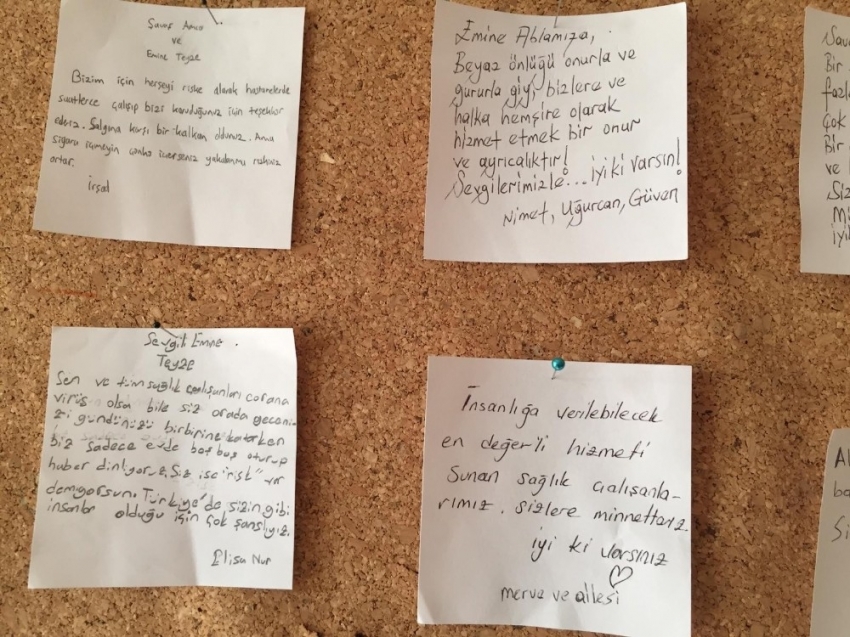 Savaş Amca
ve
Emine Teyze
Bizim için herşeyi riske alarak hastanelerde
saatlerce çalışıp bizi koruduğunuz için teşekkür
ederiz. Salgına karşı bir kalkan oldunuz. Ama
sigara içmeyin
artar.
İrşad
Emine Ablamıza,
Beyaz önlüğü onurla ve
gururla giyip bizlere ve
halka hemşire olarak
hizmet etmek bir onur
ve ayrıcalıktır!
Sevgilerimizle... iyi ki varsın!
Nimet, Uğurcan, Güven
Sava
Bir
fazla
çok
Bir
ve
Siz
Mü
iyik
Sevgili Emine
Teyze
Sen ve tüm sağlık çalışanları corana
virüs olsa bile siz orada geceni-
zi gündünüzü birbirine katarken
biz sadece evde boş boş oturup
haber dinliyoruz. Siz ise "risk" var
demiyorsun. Türkiye'de sizin gibi
insanlar olduğu için çok şanslıyız.
Elisa Nur
İnsanlığa verilebilecek
en değerli hizmeti
Sunan sağlık çalışanla-
rımız. sizlere minnettarız
iyi ki varsınız
merve ve ailesi
Al
ba
Si